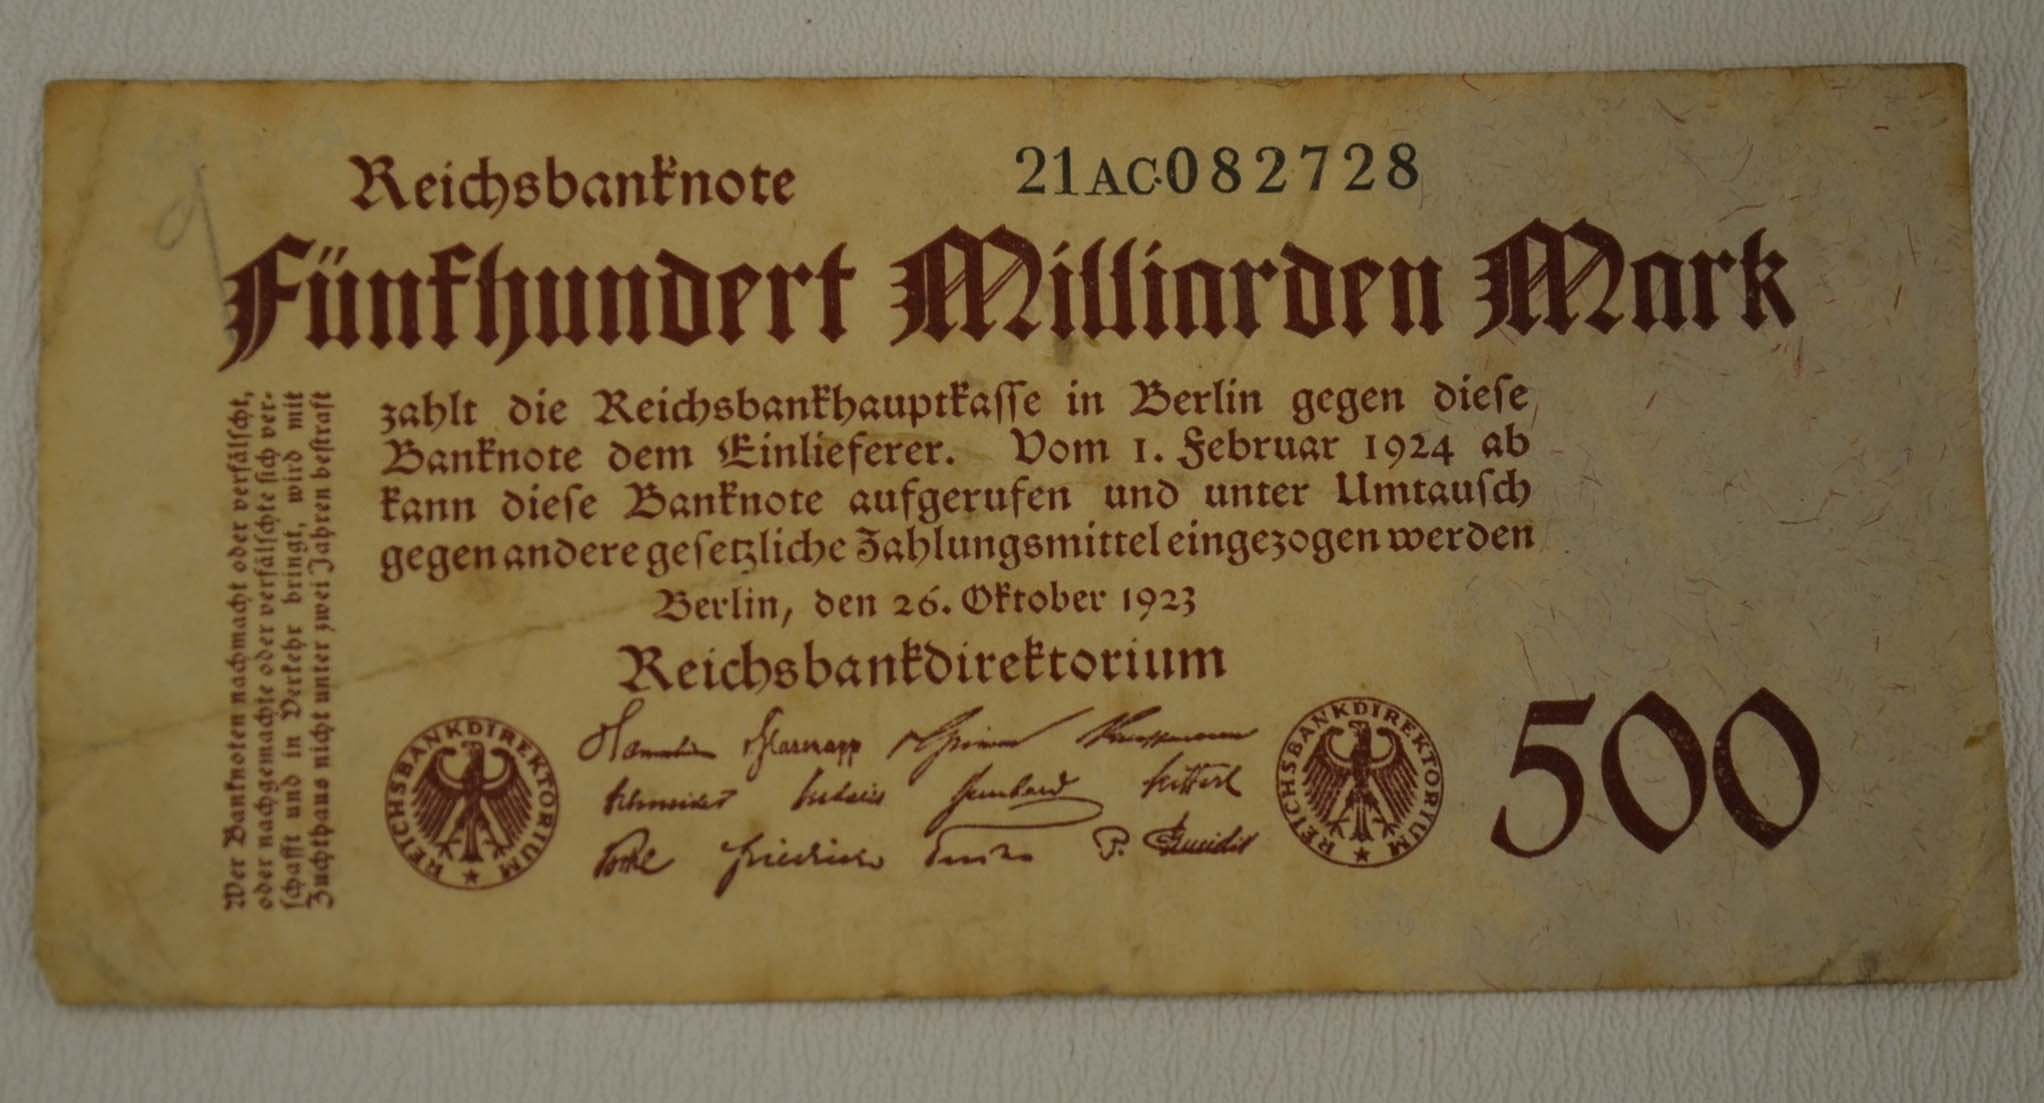 Reichsbanknote
21AC·082728
Fünfhundert Milliarden Mark
zahlt die Reichsbankhauptkasse in Berlin gegen diese
Banknote dem Einlieferer. Vom 1. Februar 1924 ab
kann diese Banknote aufgerufen und unter Umtausch
gegen andere gesetzliche Zahlungsmittel eingezogen werden
Berlin, den 26. Oktober 1923
Reichsbankdirektorium
REICHSBANKDIREKTORIUM
REICHSBANKDIREKTORIUM
500
Wer Banknoten nachmacht oder verfälscht,
oder nachgemachte oder verfälschte sich ver-
schafft und in Verkehr bringt, wird mit
Zuchthaus nicht unter zwei Jahren bestraft